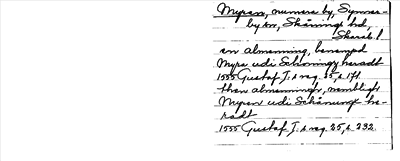 Myren, numera by, Synner-
by sn, Skånings hd,
Skarab. l
en almenning, benempd
Myra udi Schöningz heradt
1555 Gustaf I:s reg. 25, s. 171.
then almenningh, nembligh
Myren udi Schåningz he-
radt
1555 Gustaf I:s reg. 25, s. 232